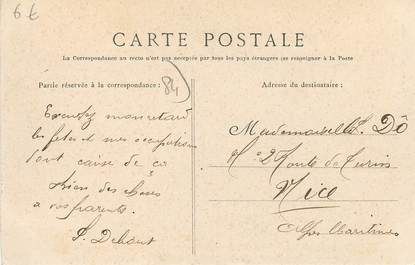 6 €
CARTE POSTALE
La Correspondance au recto n'est pas acceptée par tous les pays étrangers (se renseigner à la Poste
Partie réservée à la correspondance :
84
Adresse du destinataire :
Excusez mon retard
les fetes et mes occupations
sont cause de ça
bien des choses
a vos parents.
Mademoiselle Dô
No 2 Route de Turin
Nice
Alpes Maritimes